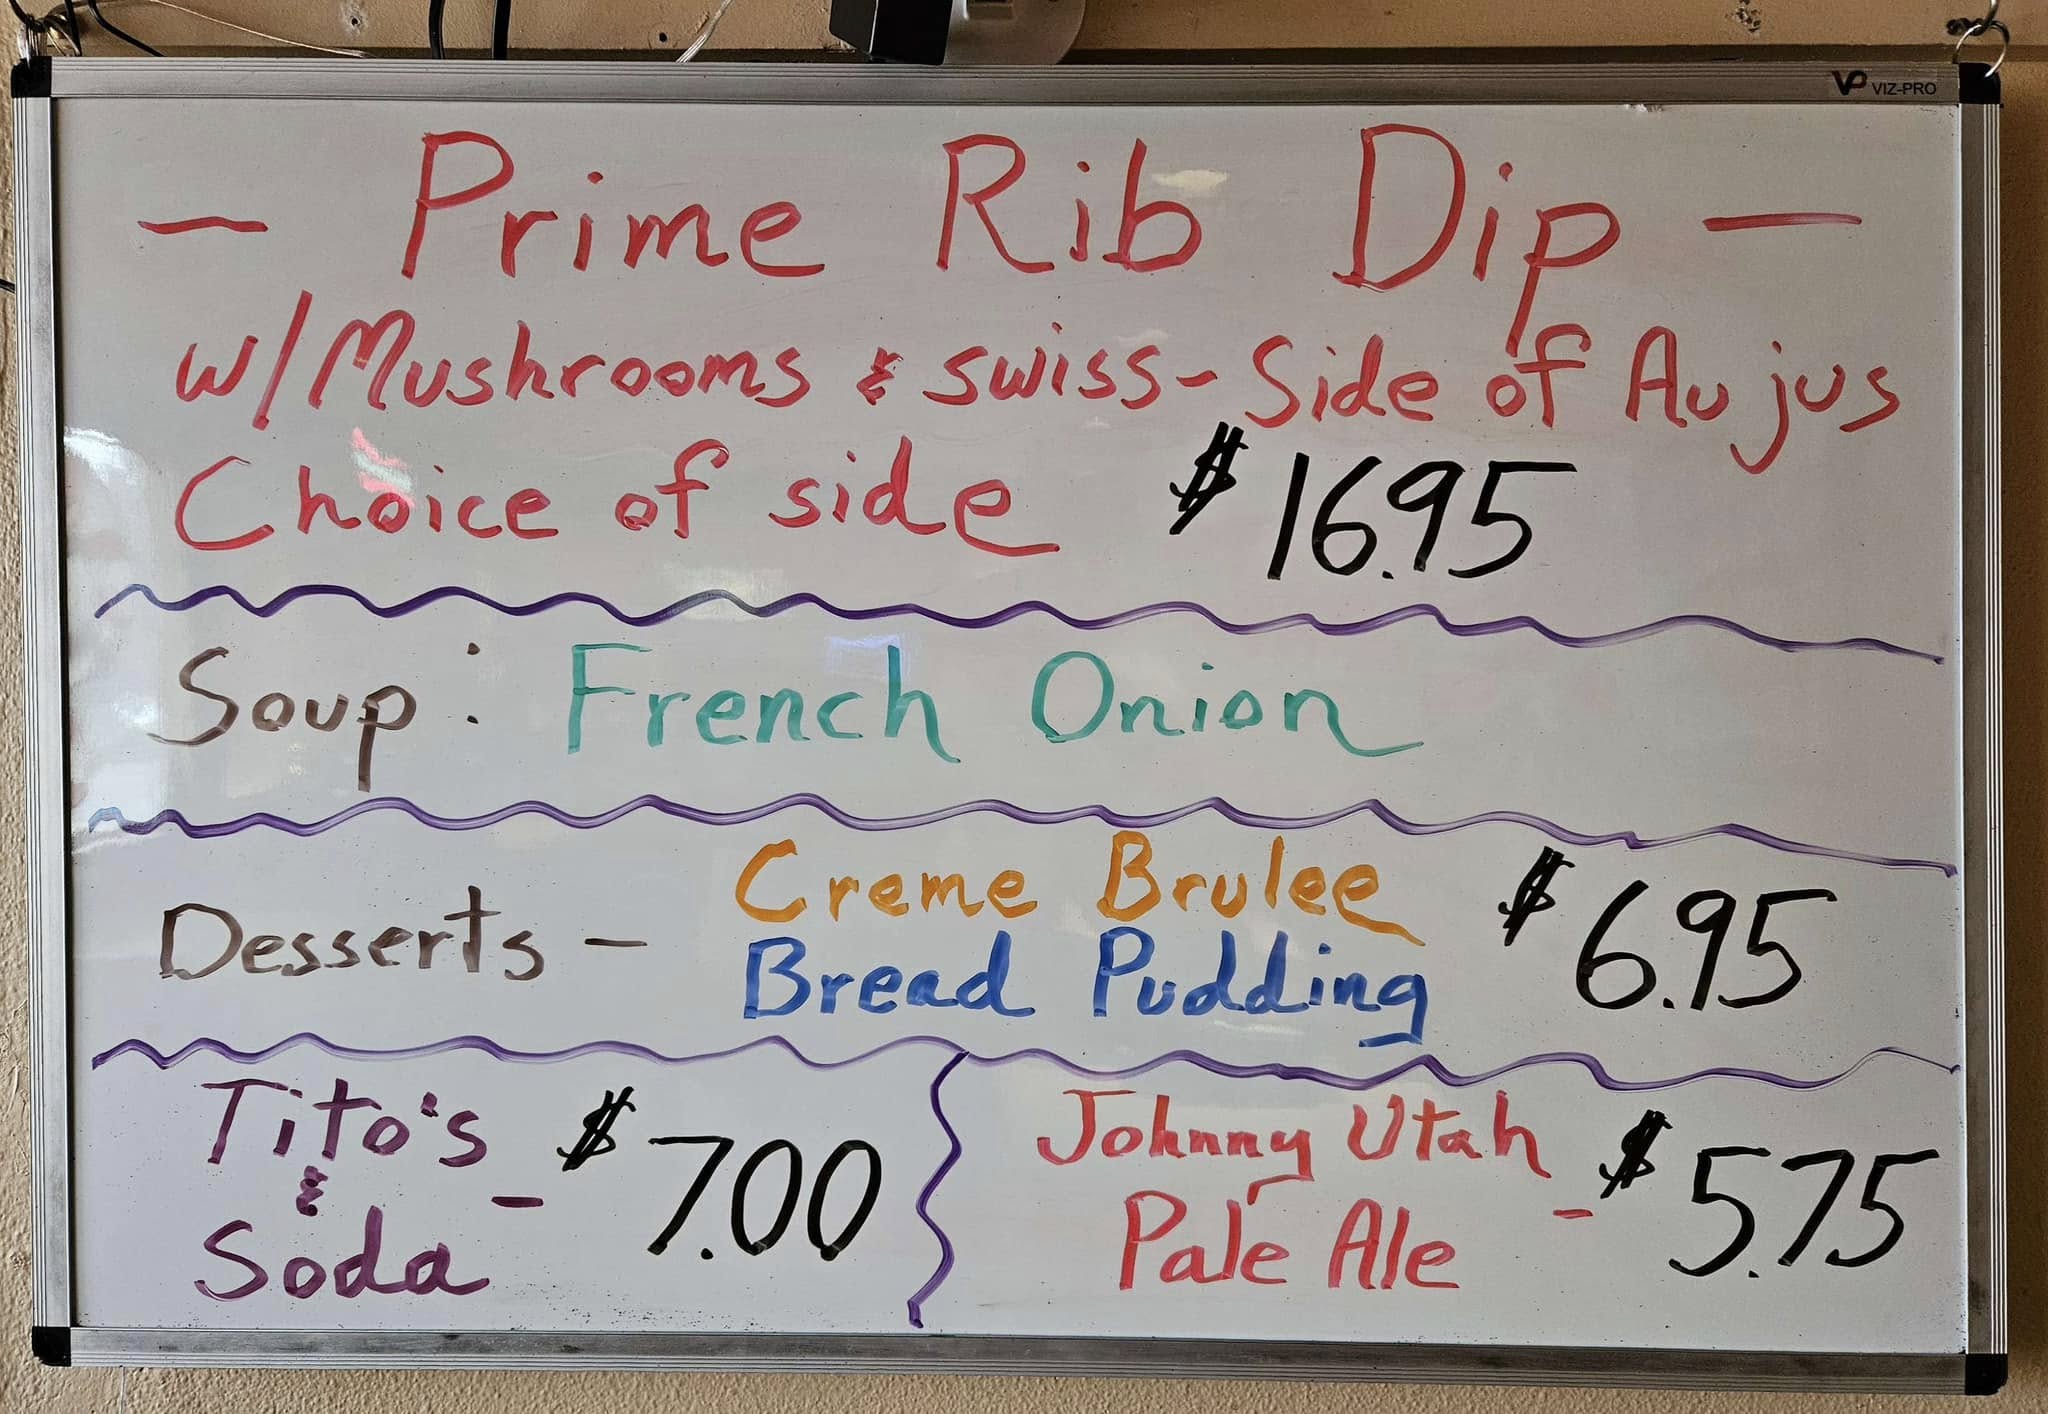 VP VIZ-PRO
— Prime Rib Dip —
w/Mushrooms & swiss - Side of Au jus
Choice of side $16.95
Soup: French Onion
Desserts - Creme Brulee $6.95
Bread Pudding
Tito's & Soda - $7.00
Johnny Utah Pale Ale - $5.75